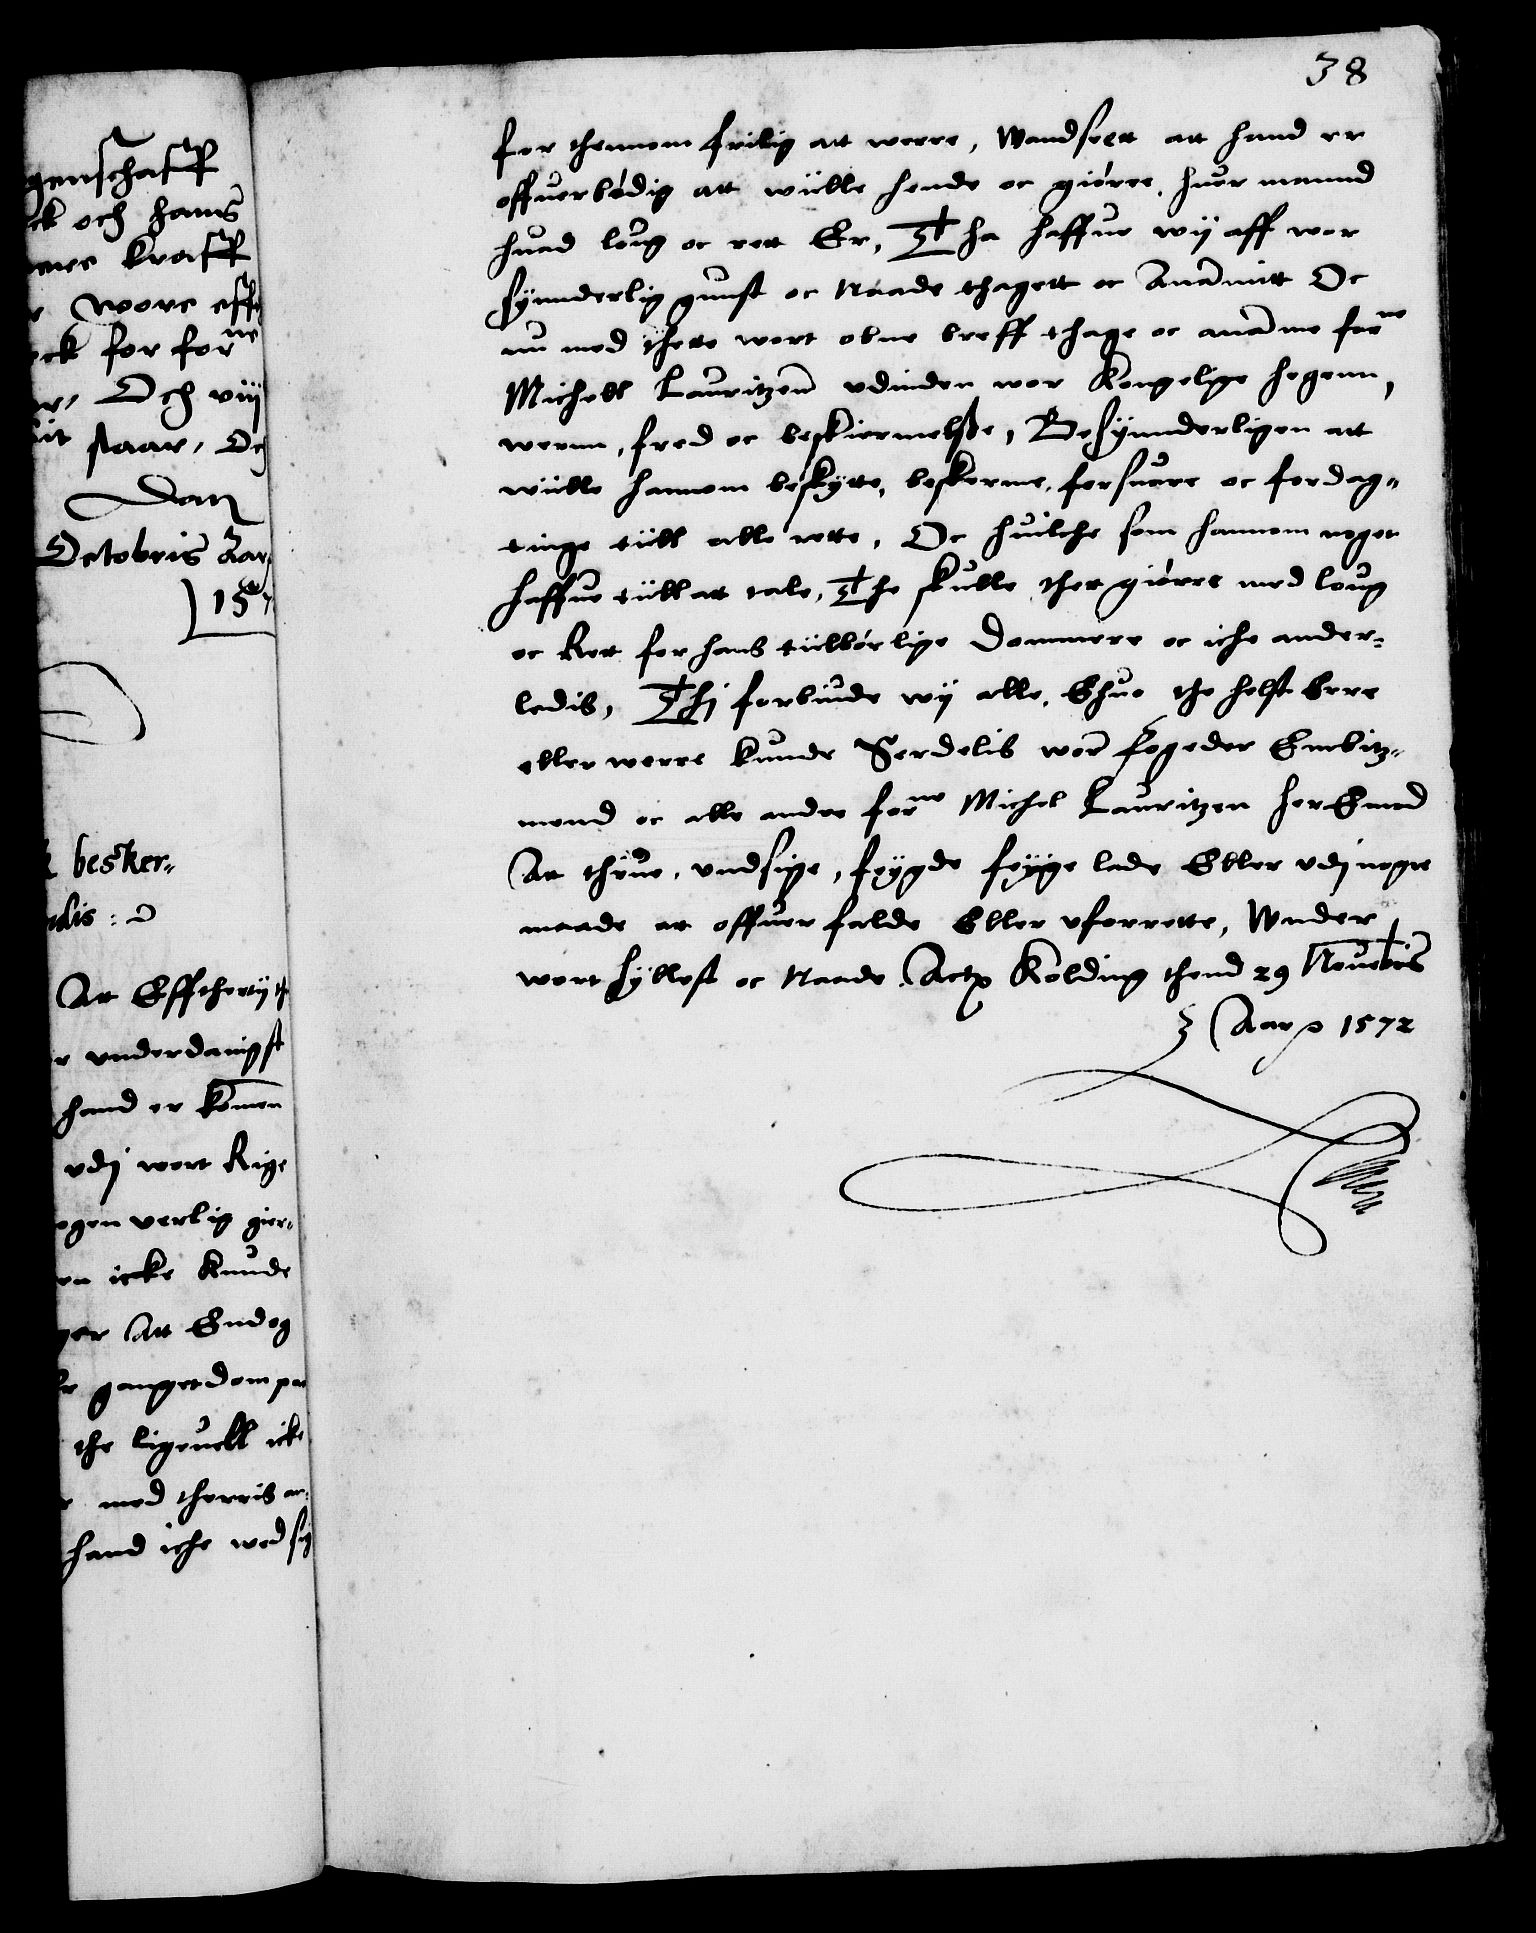 38
for thennom frilig att werre, Wandseet att hand er
offuerbødig att wülle hende oc giörre, huer mannd
huad loug oc rett Er, Tha haffue wij aff wor
synnderlig gunst oc Naade thagett oc Anammitt Oc
nu med thette wort obne breff thage oc anamme forne
Michell Lauritzen vdinden wor Kongelige hegenn,
wernn, fred oc beskiermelsse, Besynnderligen att
wülle hannom beskytte, beskerme, forsuare oc fordag-
tinge tüll alle rette, Oc huilche som hannom noget
haffue tüll att tale, The skulle thet giørre med loug
oc Rett for hans tülbørlige Dommere oc iche ander-
ledis, Thj forbiude wij alle, Ehuo the helst Erre
eller werre kunde Serdelis wor fogeder Embitz-
mend oc alle andre forne Michel Lauritzen her Emod
At thüue, vndsige, feygde feyige lade Eller vdj nogre
maade at offuerfalde Eller vforrette, Wnder
wort hyllest oc Naade Actp Kolding thend 29 Nouebris
Aar p 1572
genschafft
ck och hans
kraft
wore eff
ock for forne
Och wij
it staar, Oc
Dat
Octobris Aar
157
besker-
ndis:
Att Effthertij
r vnderdanigst
hand er komen
vdj wort Rige
ogen verlig gier-
en icke kunde
ger Att Endog
ganget dom
the ligeuell icke
med therris
hand iche wed sij